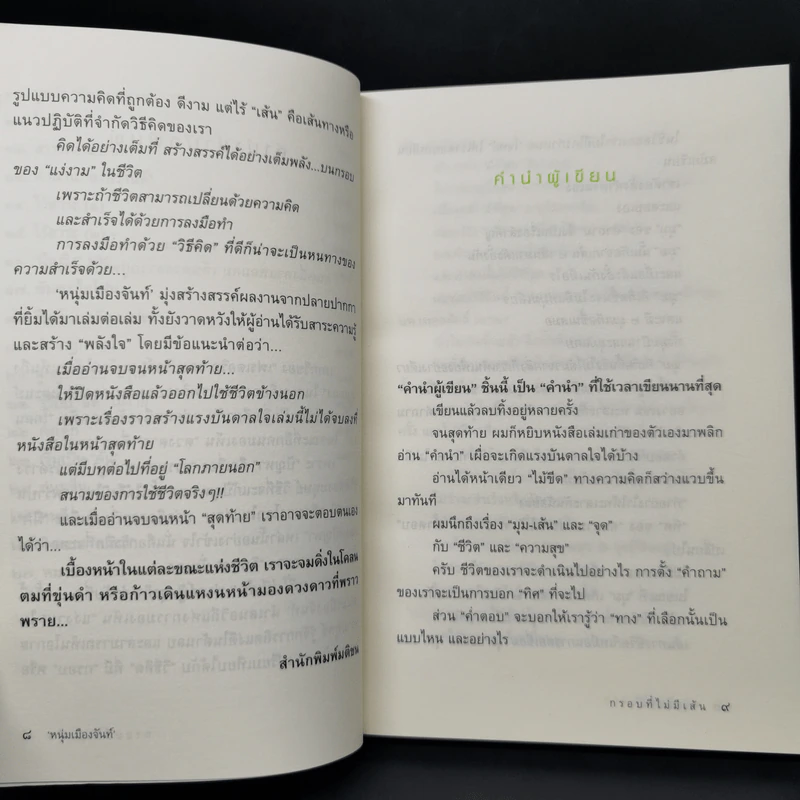 รูปแบบความคิดที่ถูกต้อง ดีงาม แต่ไร้ “เส้น” คือเส้นทางหรือ
แนวปฏิบัติที่จำกัดวิธีคิดของเรา
คิดได้อย่างเต็มที่ สร้างสรรค์ได้อย่างเต็มพลัง...บนกรอบ
ของ “แง่งาม” ในชีวิต
เพราะถ้าชีวิตสามารถเปลี่ยนด้วยความคิด
และสำเร็จได้ด้วยการลงมือทำ
การลงมือทำด้วย “วิธีคิด” ที่ดีก็น่าจะเป็นหนทางของ
ความสำเร็จด้วย...
‘หนุ่มเมืองจันท์’ มุ่งสร้างสรรค์ผลงานจากปลายปากกา
ที่ยิ้มได้มาเล่มต่อเล่ม ทั้งยังวาดหวังให้ผู้อ่านได้รับสาระความรู้
และสร้าง “พลังใจ” โดยมีข้อแนะนำต่อว่า...
เมื่ออ่านจบจนหน้าสุดท้าย...
ให้ปิดหนังสือแล้วออกไปใช้ชีวิตข้างนอก
เพราะเรื่องราวสร้างแรงบันดาลใจเล่มนี้ไม่ได้จบลงที่
หนังสือในหน้าสุดท้าย
แต่มีบทต่อไปที่อยู่ “โลกภายนอก”
สนามของการใช้ชีวิตจริงๆ!!
และเมื่ออ่านจบจนหน้า “สุดท้าย” เราอาจจะตอบตนเอง
ได้ว่า...
เบื้องหน้าในแต่ละขณะแห่งชีวิต เราจะจมดิ่งในโคลน
ตมที่ขุ่นดำ หรือก้าวเดินแหงนหน้ามองดวงดาวที่พราว
พราย...
สำนักพิมพ์มติชน
๘ ‘หนุ่มเมืองจันท์’
คำนำผู้เขียน
“คำนำผู้เขียน” ชิ้นนี้ เป็น “คำนำ” ที่ใช้เวลาเขียนนานที่สุด
เขียนแล้วลบทิ้งอยู่หลายครั้ง
จนสุดท้าย ผมก็หยิบหนังสือเล่มเก่าของตัวเองมาพลิก
อ่าน “คำนำ” เผื่อจะเกิดแรงบันดาลใจได้บ้าง
อ่านได้หน้าเดียว “ไม้ขีด” ทางความคิดก็สว่างแวบขึ้น
มาทันที
ผมนึกถึงเรื่อง “มุม-เส้น” และ “จุด”
กับ “ชีวิต” และ “ความสุข”
ครับ ชีวิตของเราจะดำเนินไปอย่างไร การตั้ง “คำถาม”
ของเราจะเป็นการบอก “ทิศ” ที่จะไป
ส่วน “คำตอบ” จะบอกให้เรารู้ว่า “ทาง” ที่เลือกนั้นเป็น
แบบไหน และอย่างไร
กรอบที่ไม่มีเส้น ๙